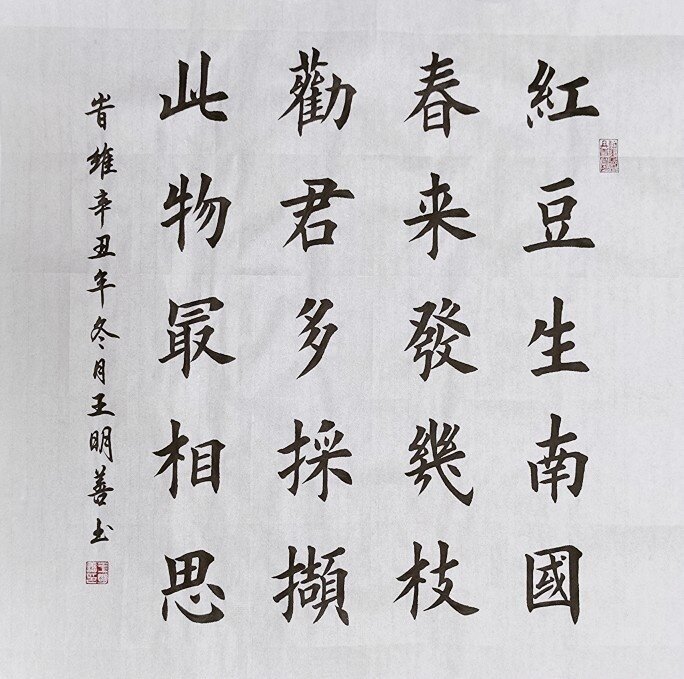 紅豆生南國
春来發幾枝
勸君多採擷
此物最相思
旹維辛丑年冬月王明善书